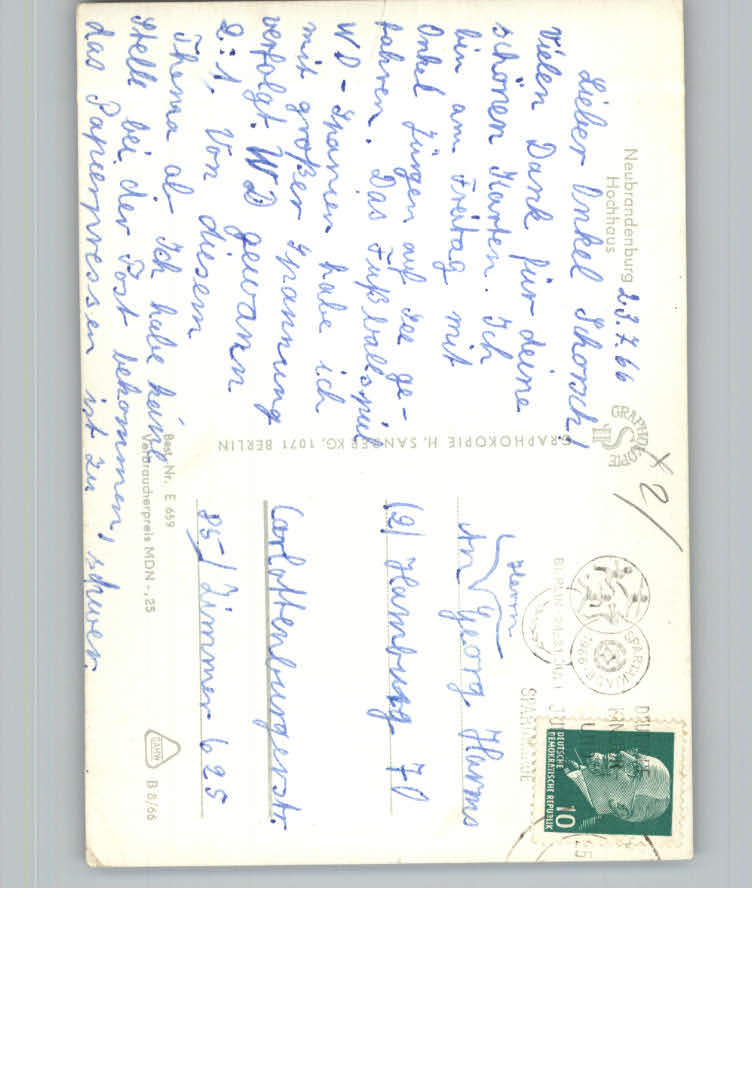 Neubrandenburg
Hochhaus
23.7.66
Lieber Onkel Schorsch!
Vielen Dank für deine
schönen Karten. Ich
bin am Freitag mit
Onkel Jürgen auf See ge-
fahren. Das Fußballspiel
WD - Spanien habe ich
mit großer Spannung
verfolgt. WD gewann
2:1. Von diesem
Thema ab Ich habe keine
Stelle bei der Post bekommen,
das Papierpressen ist zu schwer.
GRAPHOKOPIE
GRAPHOKOPIE H. SANDER KG, 1071 BERLIN
Best.-Nr. E 659
Verbraucherpreis MDN -,25
x 2/
SPARTAKIADE
1966
DEUTSCHE
DEMOKRATISCHE REPUBLIK
10
Herrn
An Georg Harms
(2) Hamburg 70
Carlottenburgerstr.
85 / Zimmer 625
DAHW
B 8/66